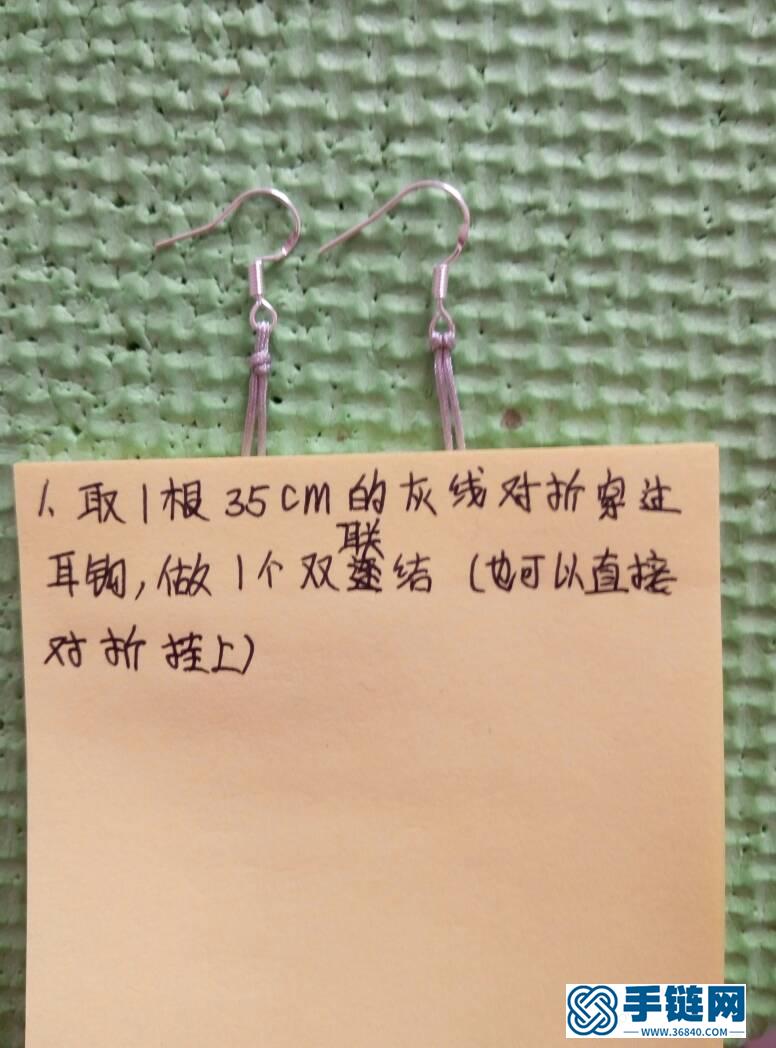 1、取1根35cm的灰线对折穿过
耳钩,做1个双联结(也可以直接
对折挂上)
手链网
www.36840.com